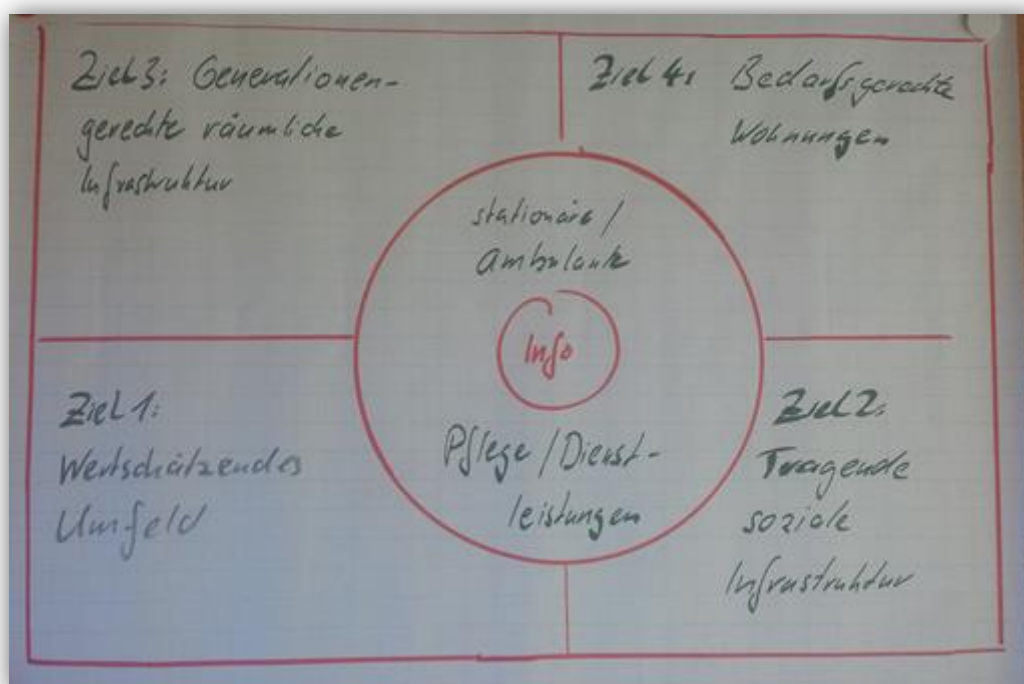 Ziel 3: Generationen-
gerechte räumliche
Infrastruktur
Ziel 4: Bedarfsgerechte
Wohnungen
stationäre /
Ambulante
Info
Pflege / Dienst-
leistungen
Ziel 1:
Wertschätzendes
Umfeld
Ziel 2:
Tragende
soziale
Infrastruktur